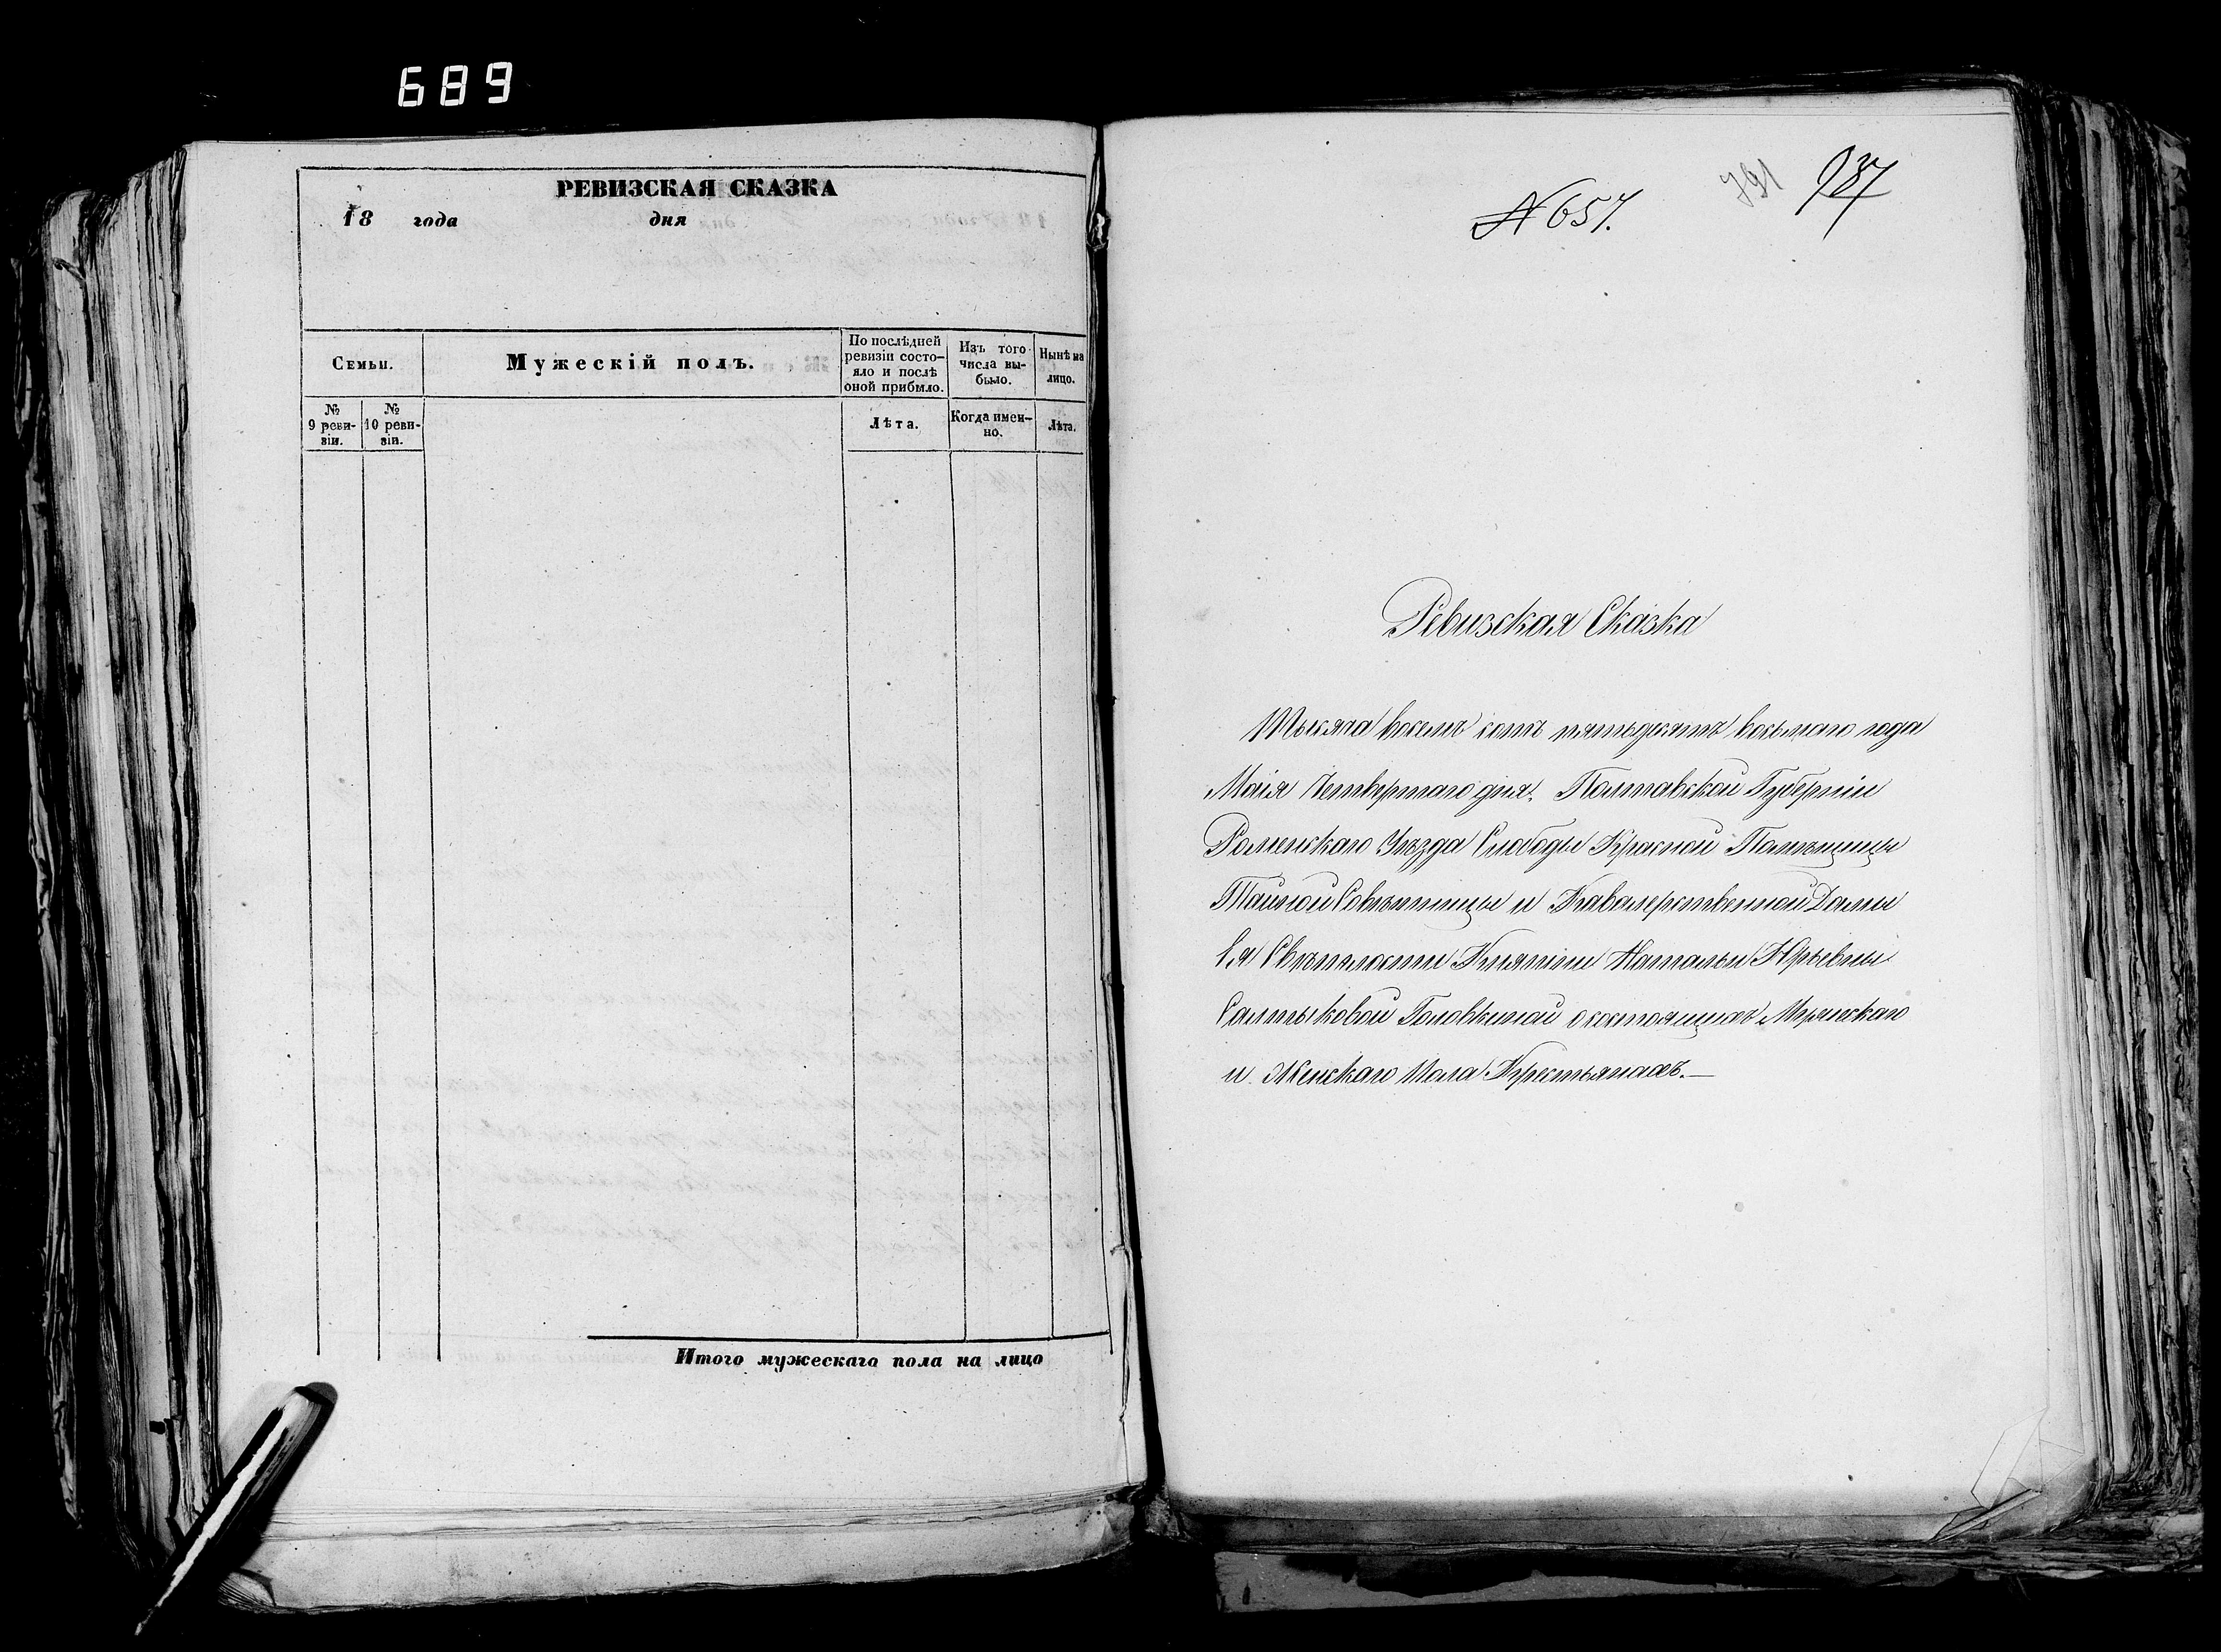 689
РЕВИЗСКАЯ СКАЗКА
18 года дня
Семьи.
Мужескій полъ.
По послѣдней ревизіи состо-
яло и послѣ оной прибыло.
Изъ того числа вы-
было.
Нынѣ на лицо.
№ 9 реви-
зіи.
№ 10 реви-
зіи.
Лѣта.
Когда имен-
но.
Лѣта.
Итого мужескаго пола на лицо
№ 657.
791
937
Ревизская Сказка
Тысяча восемь сотъ пятьдесятъ восьмаго года
Маія Четвертаго дня, Полтавской Губерніи
Роменскаго Уѣзда Слободы Красной Помѣщицы
Тайной Совѣтницы и Кавалерственной Дамы
Ея Свѣтлости Княгини Натальи Юрьевны
Салтыковой Головкиной о состоящихъ Мужескаго
и Женскаго Пола Крестьянахъ.—